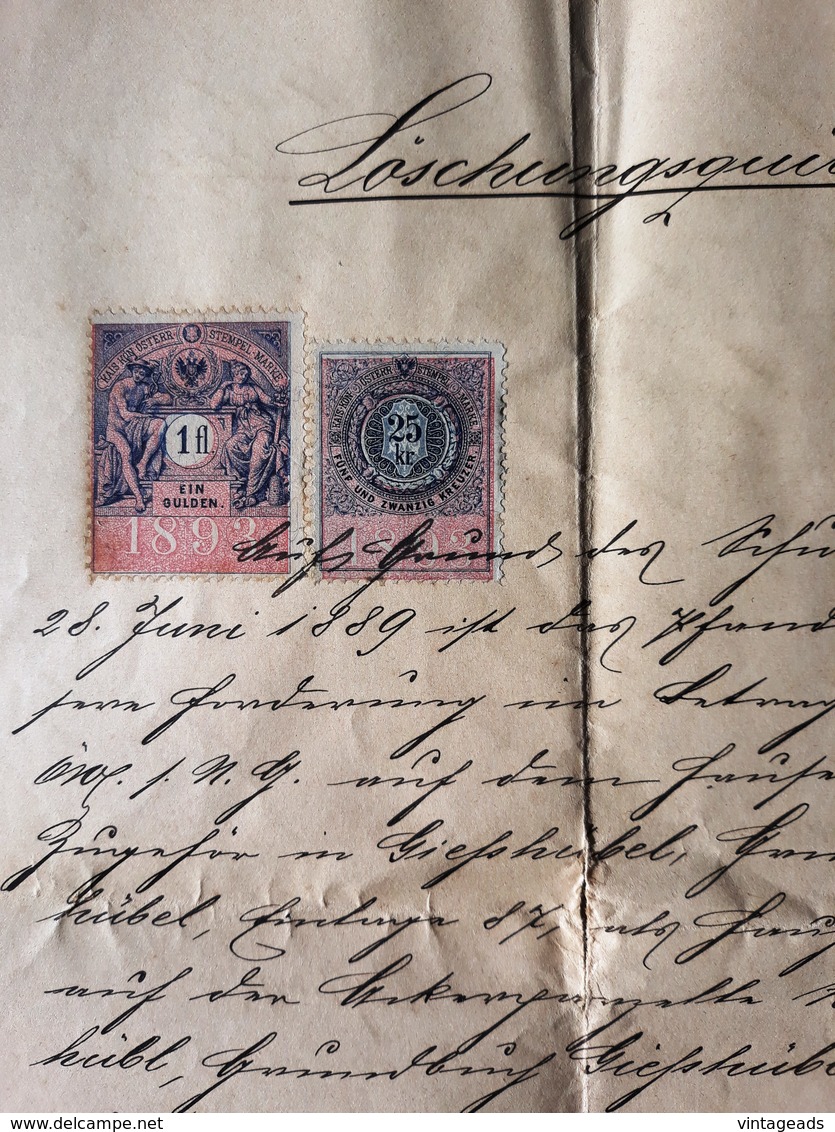 Löschungsqui
KAIS. KÖN. ÖSTERR. STEMPEL-MARKE
1 fl.
EIN
GULDEN.
1893
KAIS. KÖN. ÖSTERR. STEMPEL MARKE.
25
kr
FÜNF UND ZWANZIG KREUZER
1893
Auf Grund des Schu
28. Juni 1889 ist das Pfand
sere Forderung im Betrag
öW. s. N. G. auf dem Hause
Zugehör in Gießhübel, Gru
hübel, Einlage 87, als Haup
auf der Ackerparzelle
hübl, Grundbuch Gießhübel
delcampe.net
vintageads